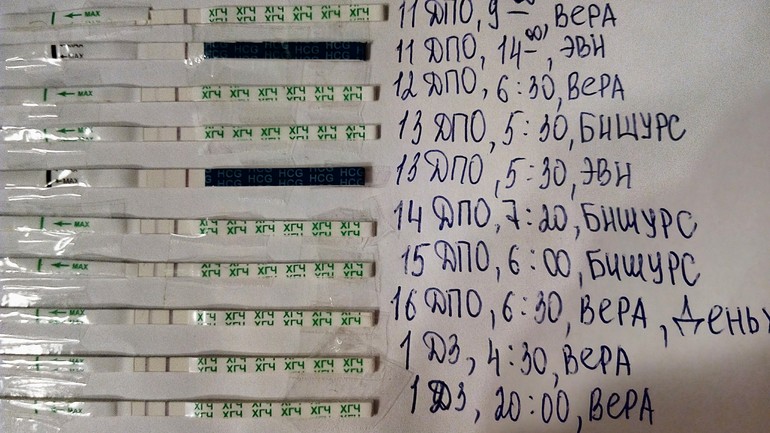 MAX ХГЧ ХГЧ ХГЧ ХГЧ ХГЧ ХГЧ 11 ДПО, 9 00, ВЕРА
HCG HCG HCG HCG 11 ДПО, 14 00, ЭВН
MAX ХГЧ ХГЧ ХГЧ ХГЧ ХГЧ ХГЧ 12 ДПО, 6:30, ВЕРА
ХГЧ ХГЧ ХГЧ ХГЧ ХГЧ ХГЧ 13 ДПО, 5:30, БИШУРС
MAX HCG HCG HCG HCG 13 ДПО, 5:30, ЭВН
MAX ХГЧ ХГЧ ХГЧ ХГЧ ХГЧ ХГЧ 14 ДПО, 7:20, БИШУРС
MAX ХГЧ ХГЧ ХГЧ ХГЧ ХГЧ ХГЧ 15 ДПО, 6:00, БИШУРС
MAX ХГЧ ХГЧ ХГЧ ХГЧ ХГЧ ХГЧ 16 ДПО, 6:30, ВЕРА, ДЕНЬ
MAX ХГЧ ХГЧ ХГЧ ХГЧ ХГЧ ХГЧ 1 ДЗ, 4:30, ВЕРА
MAX ХГЧ ХГЧ ХГЧ ХГЧ ХГЧ ХГЧ 1 ДЗ, 20:00, ВЕРА